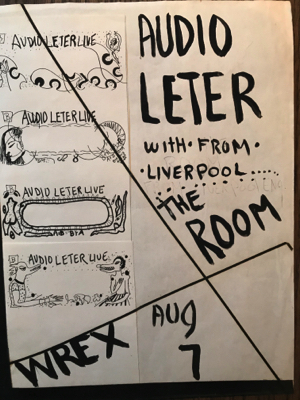 AUDIO LETER LIVE
AUDIO LETER LIVE
AUDIO LETER LIVE
AUDIO LETER LIVE
AUDIO
LETER
WITH • FROM •
• LIVERPOOL.....
THE
ROOM
WREX
AUG
7